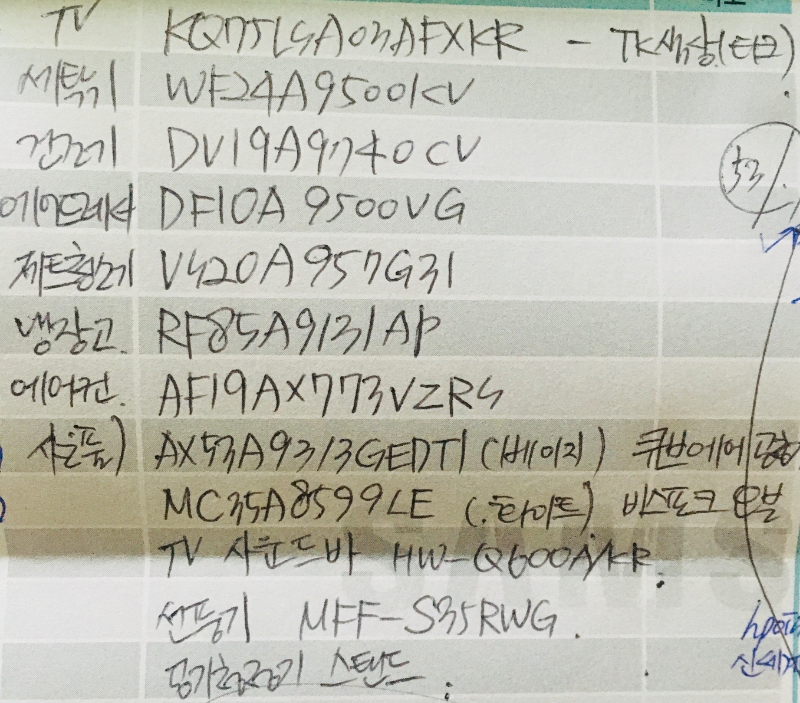 TV KQ75LSA03AFXKR - TK색상(티크)
세탁기 WF24A9500KV
건조기 DV19A9740CV
53
에어드레서 DF10A9500VG
제트청소기 VS20A957G31
냉장고 RF85A9131AP
에어컨 AF19AX773VZRS
사은품) AX53A9313GEDT1 (베이지) 큐브에어
MC35A8599LE (화이트) 비스포크 오븐
TV 사운드바 HW-Q600A/KR
선풍기 MFF-S35RWG.
공기청정기 스탠드
hpoint
신세계